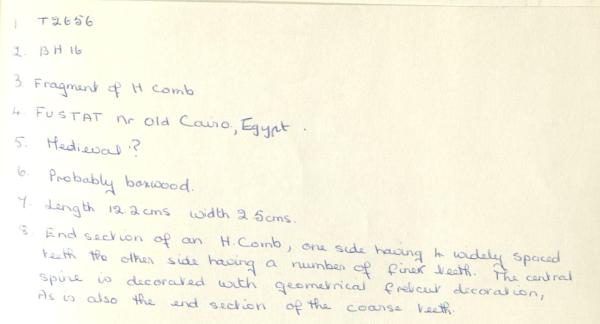 1 T2656
2. BH 16
3 Fragment of H Comb
4. FUSTAT nr old Cairo, Egypt.
5. Medieval?
6. Probably boxwood.
7. Length 12.2cms width 2 5cms.
8. End section of an H. Comb, one side having 4 widely spaced
teeth the other side having a number of finer teeth. The central
spine is decorated with geometrical fretcut decoration,
As is also the end section of the coarse teeth.